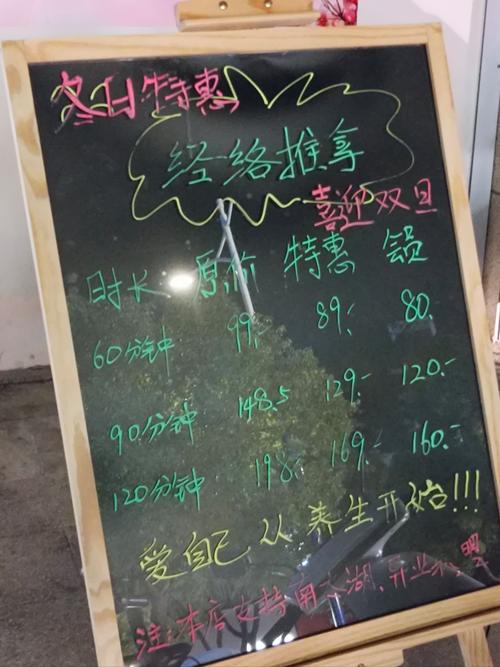 冬日特惠
经络推拿
喜迎双旦
时长 原价 特惠 会员
60分钟 99.- 89.- 80.
90分钟 148.5 129.- 120.-
120分钟 198.- 169.- 160.-
爱自己从养生开始!!!
注:本店支持南太湖、异业联盟